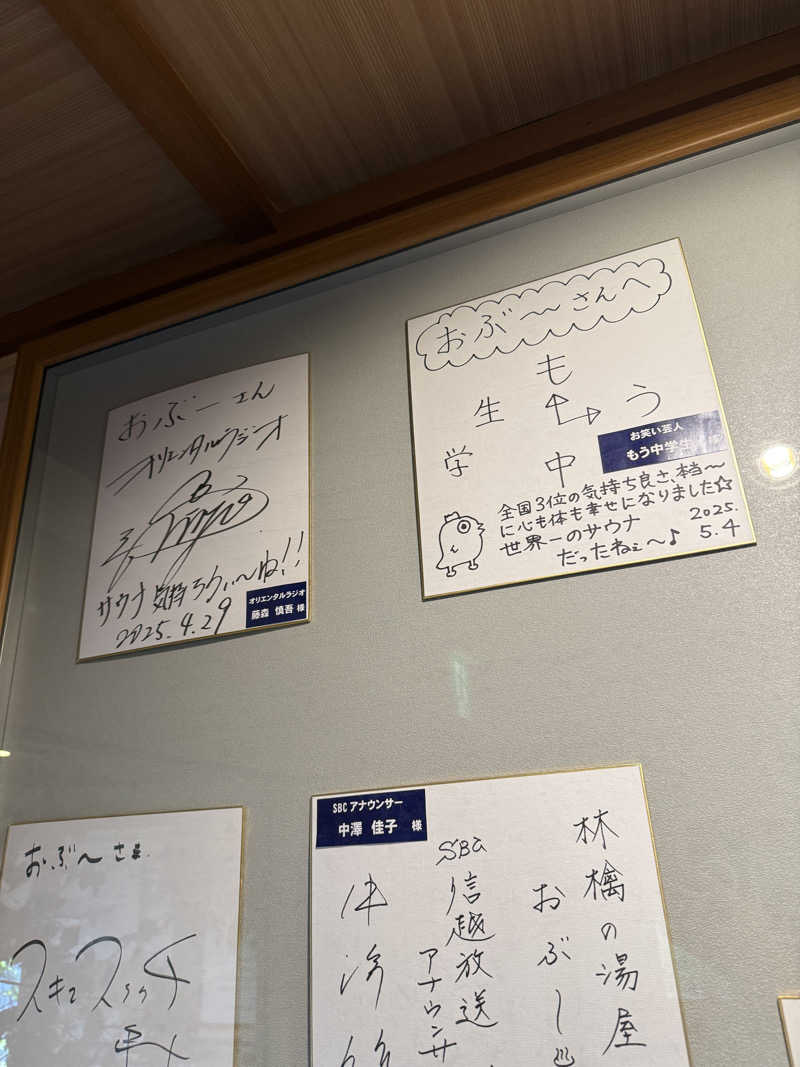 おぶーさん
オリエンタルラジオ
サウナ気持ちいい〜ね!!
2025.4.29
オリエンタルラジオ
藤森 慎吾 様
おぶ〜さんへ
も
生 う
学 中
お笑い芸人
もう中学生
全国3位の気持ち良さ、本当〜
に心も体も幸せになりました☆
世界一のサウナ
だったねぇ〜♪
2025.
5.4
おぶ〜さま
SBC アナウンサー
中澤 佳子 様
林檎の湯屋
おぶし〜♨
SBC
信越放送
アナウンサ